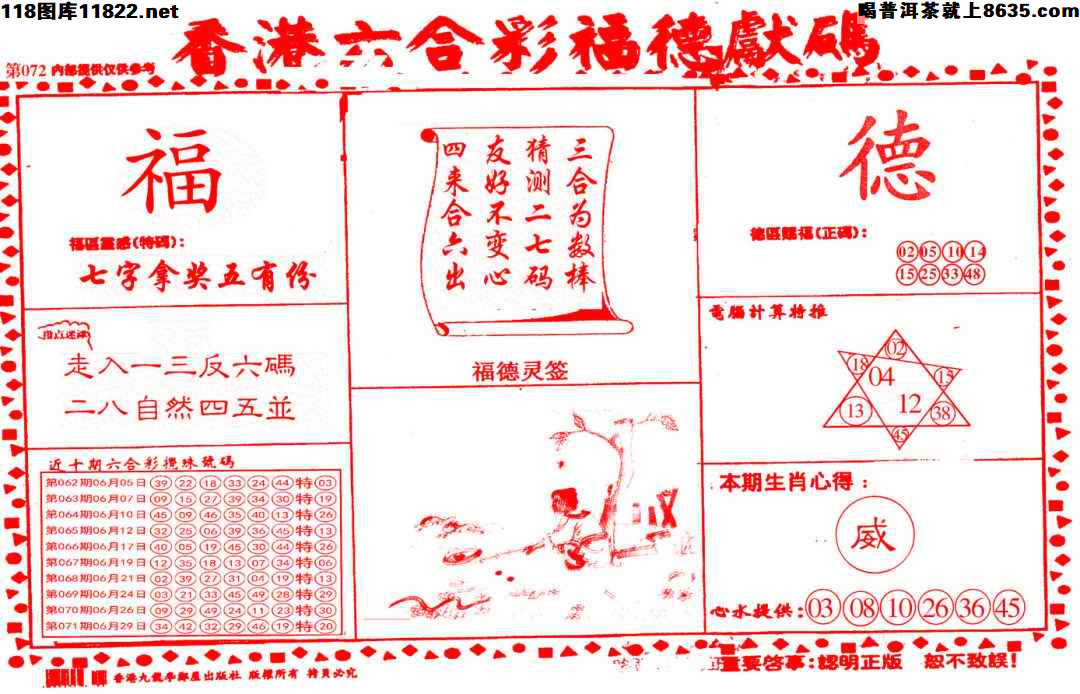 118图库11822.net
喝普洱茶就上8635.com
香港六合彩福德獻碼
第072 內部提供仅供参考
福
福區靈感(特碼):
七字拿奖五有份
走入一三反六碼
二八自然四五並
近十期六合彩攪珠號碼
第062期06月05日 39 22 18 33 24 44 特 03
第063期06月07日 09 15 27 39 34 30 特 19
第064期06月10日 45 09 46 35 40 13 特 26
第065期06月12日 32 25 06 39 36 45 特 13
第066期06月17日 40 05 19 45 30 44 特 26
第067期06月19日 12 35 18 13 07 34 特 06
第068期06月21日 02 39 27 31 04 19 特 13
第069期06月24日 03 21 33 45 49 28 特 29
第070期06月26日 09 29 49 24 11 23 特 30
第071期06月29日 34 42 32 29 46 19 特 20
三合为数棒
猜测二七码
友好不变心
四来合六出
福德灵签
德
德區賜福(正碼):
02 05 10 14
15 25 33 48
電腦計算特推
02
18 04 15
13 12 38
45
本期生肖心得:
威
心水提供: 03 08 10 26 36 45
重要啓事:認明正版 恕不致誤!
版權所有 拷貝必究